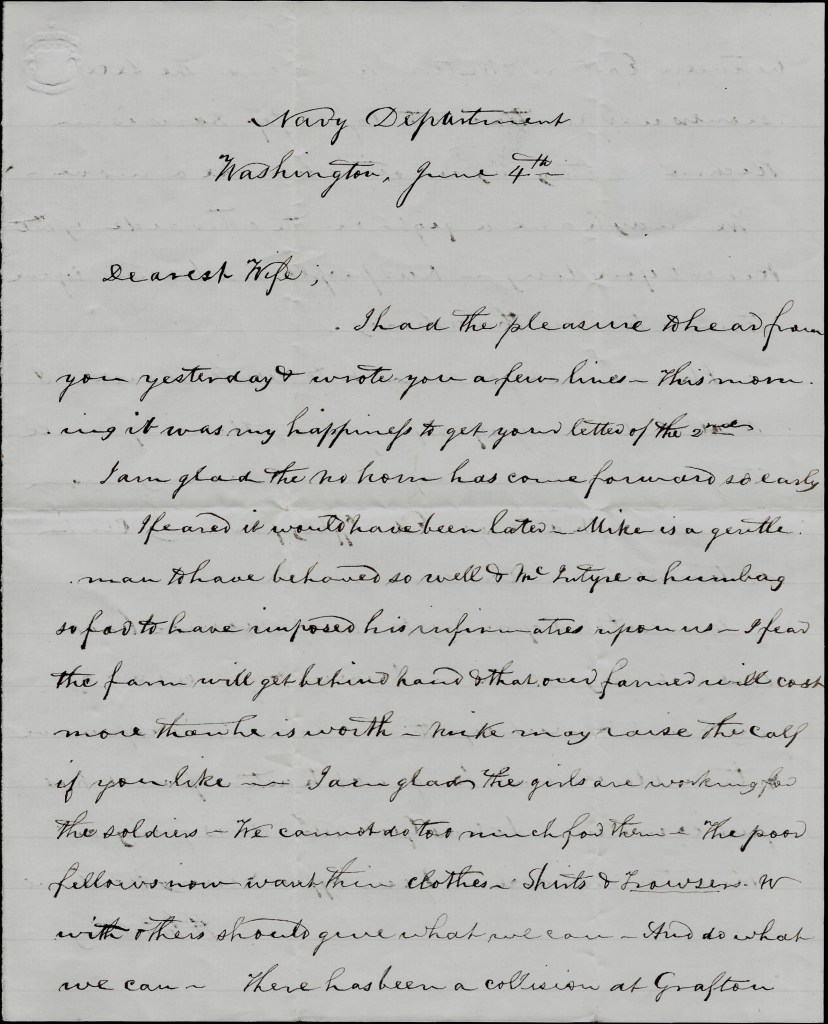 Navy Department
Washington, June 4th
Dearest Wife;
I had the pleasure to hear from
you yesterday & wrote you a few lines – This morn-
ing it was my happiness to get your letter of the 2nd
I am glad the no horn has come forward so early
I feared it would have been later – Mike is a gentle-
man to have behaved so well & McIntyre a humbug
so far to have imposed his infirmaties upon us – I fear
the farm will get behind hand & that our farmer will cost
more than he is worth – Mike may raise the calf
if you like – I am glad the girls are working for
the soldiers – We cannot do too much for them – The poor
fellows now want thin clothes – Shirts & Trowsers. W
with others should give what we can – And do what
we can – There has been a collision at Grafton